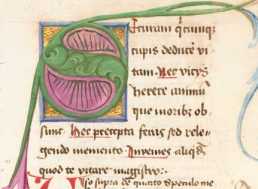 Secu​ram q̃cumque
cupis deducẽ vi
tam. Nec vicijs
herere animũ
que moribꝰ ob
sunt. Hec precepta feras sed rele
gendo memento. Invenies aliq̃
quod te vitare magistro:
supra de quarto speculo me